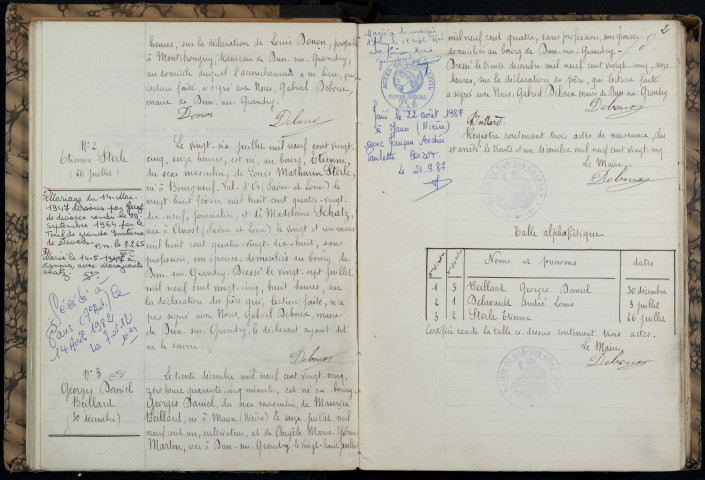 heures, sur la déclaration de Louis Donon, propriétaire
à Montchougny, hameau de Dun-sur-Grandry,
au domicile duquel l'accouchement a eu lieu, qui,
lecture faite, a signé avec Nous, Gabriel Deboux,
maire de Dun-sur-Grandry.
Donon Deboux
N° 2
Etienne Sterle
(26 juillet)
Le vingt-six juillet mil neuf cent vingt-
cinq, seize heures, est né, au bourg, Etienne,
du sexe masculin, de Louis Mathurin Sterle,
né à Bourgneuf-Val-d'Or (Saône et Loire) le
vingt huit février mil huit cent quatre-vingt-
dix-neuf, journalier, et de Madeleine Schatz,
née à Anost (Saône et Loire) le vingt et un mars
mil huit cent quatre-vingt-dix-huit, sans
profession, son épouse, domiciliés au bourg de
Dun-sur-Grandry. Dressé le vingt-sept juillet
mil neuf cent vingt-cinq, huit heures, sur
la déclaration du père qui, lecture faite, n'a
pas signé avec Nous, Gabriel Deboux, maire
de Dun-sur-Grandry, le déclarant ayant dit
ne le savoir.
Deboux
Mariage du 14 Mai
1947 dissous par jugt
de divorce rendu le 29
Septembre 1964 par le
Trib. de grande Instance
de
Marié le 14-5-1947 à
avec Marguerite
Décédé à
Paris
14 Août 1982
N° 3
Georges Daniel
Beillard
(30 décembre)
Le trente décembre mil neuf cent vingt-cinq,
zéro heure quarante-cinq minutes, est né au bourg
Georges Daniel, du sexe masculin, de Maurice
Beillard, né à Maux (Nièvre) le seize juillet mil
neuf cent un, cultivateur, et de Angèle Marie
Martin, née à Dun-sur-Grandry, le vingt-huit juillet
2
mil neuf cent quatre, sans profession, son épouse,
domiciliés au bourg de Dun-sur-Grandry.
Dressé le trente décembre mil neuf cent vingt-cinq, seize
heures, sur la déclaration du père, qui, lecture faite
a signé avec Nous, Gabriel Deboux, maire de Dun-sur-Grandry.
Beillard Deboux
Registre contenant trois actes de naissance, clos
et arrêté le trente et un décembre mil neuf cent vingt cinq
Le Maire,
Deboux
le 22 août 1987
à (Nièvre)
avec Andrée
Paulette
le 21.9.87
Table alphabétique
Noms et prénoms dates
1 3 Beillard Georges Daniel 30 décembre
2 1 Delavault André Louis 3 juillet
3 2 Sterle Etienne 26 juillet
Certifiée exacte la table ci-dessus contenant trois actes.
Le Maire,
Deboux